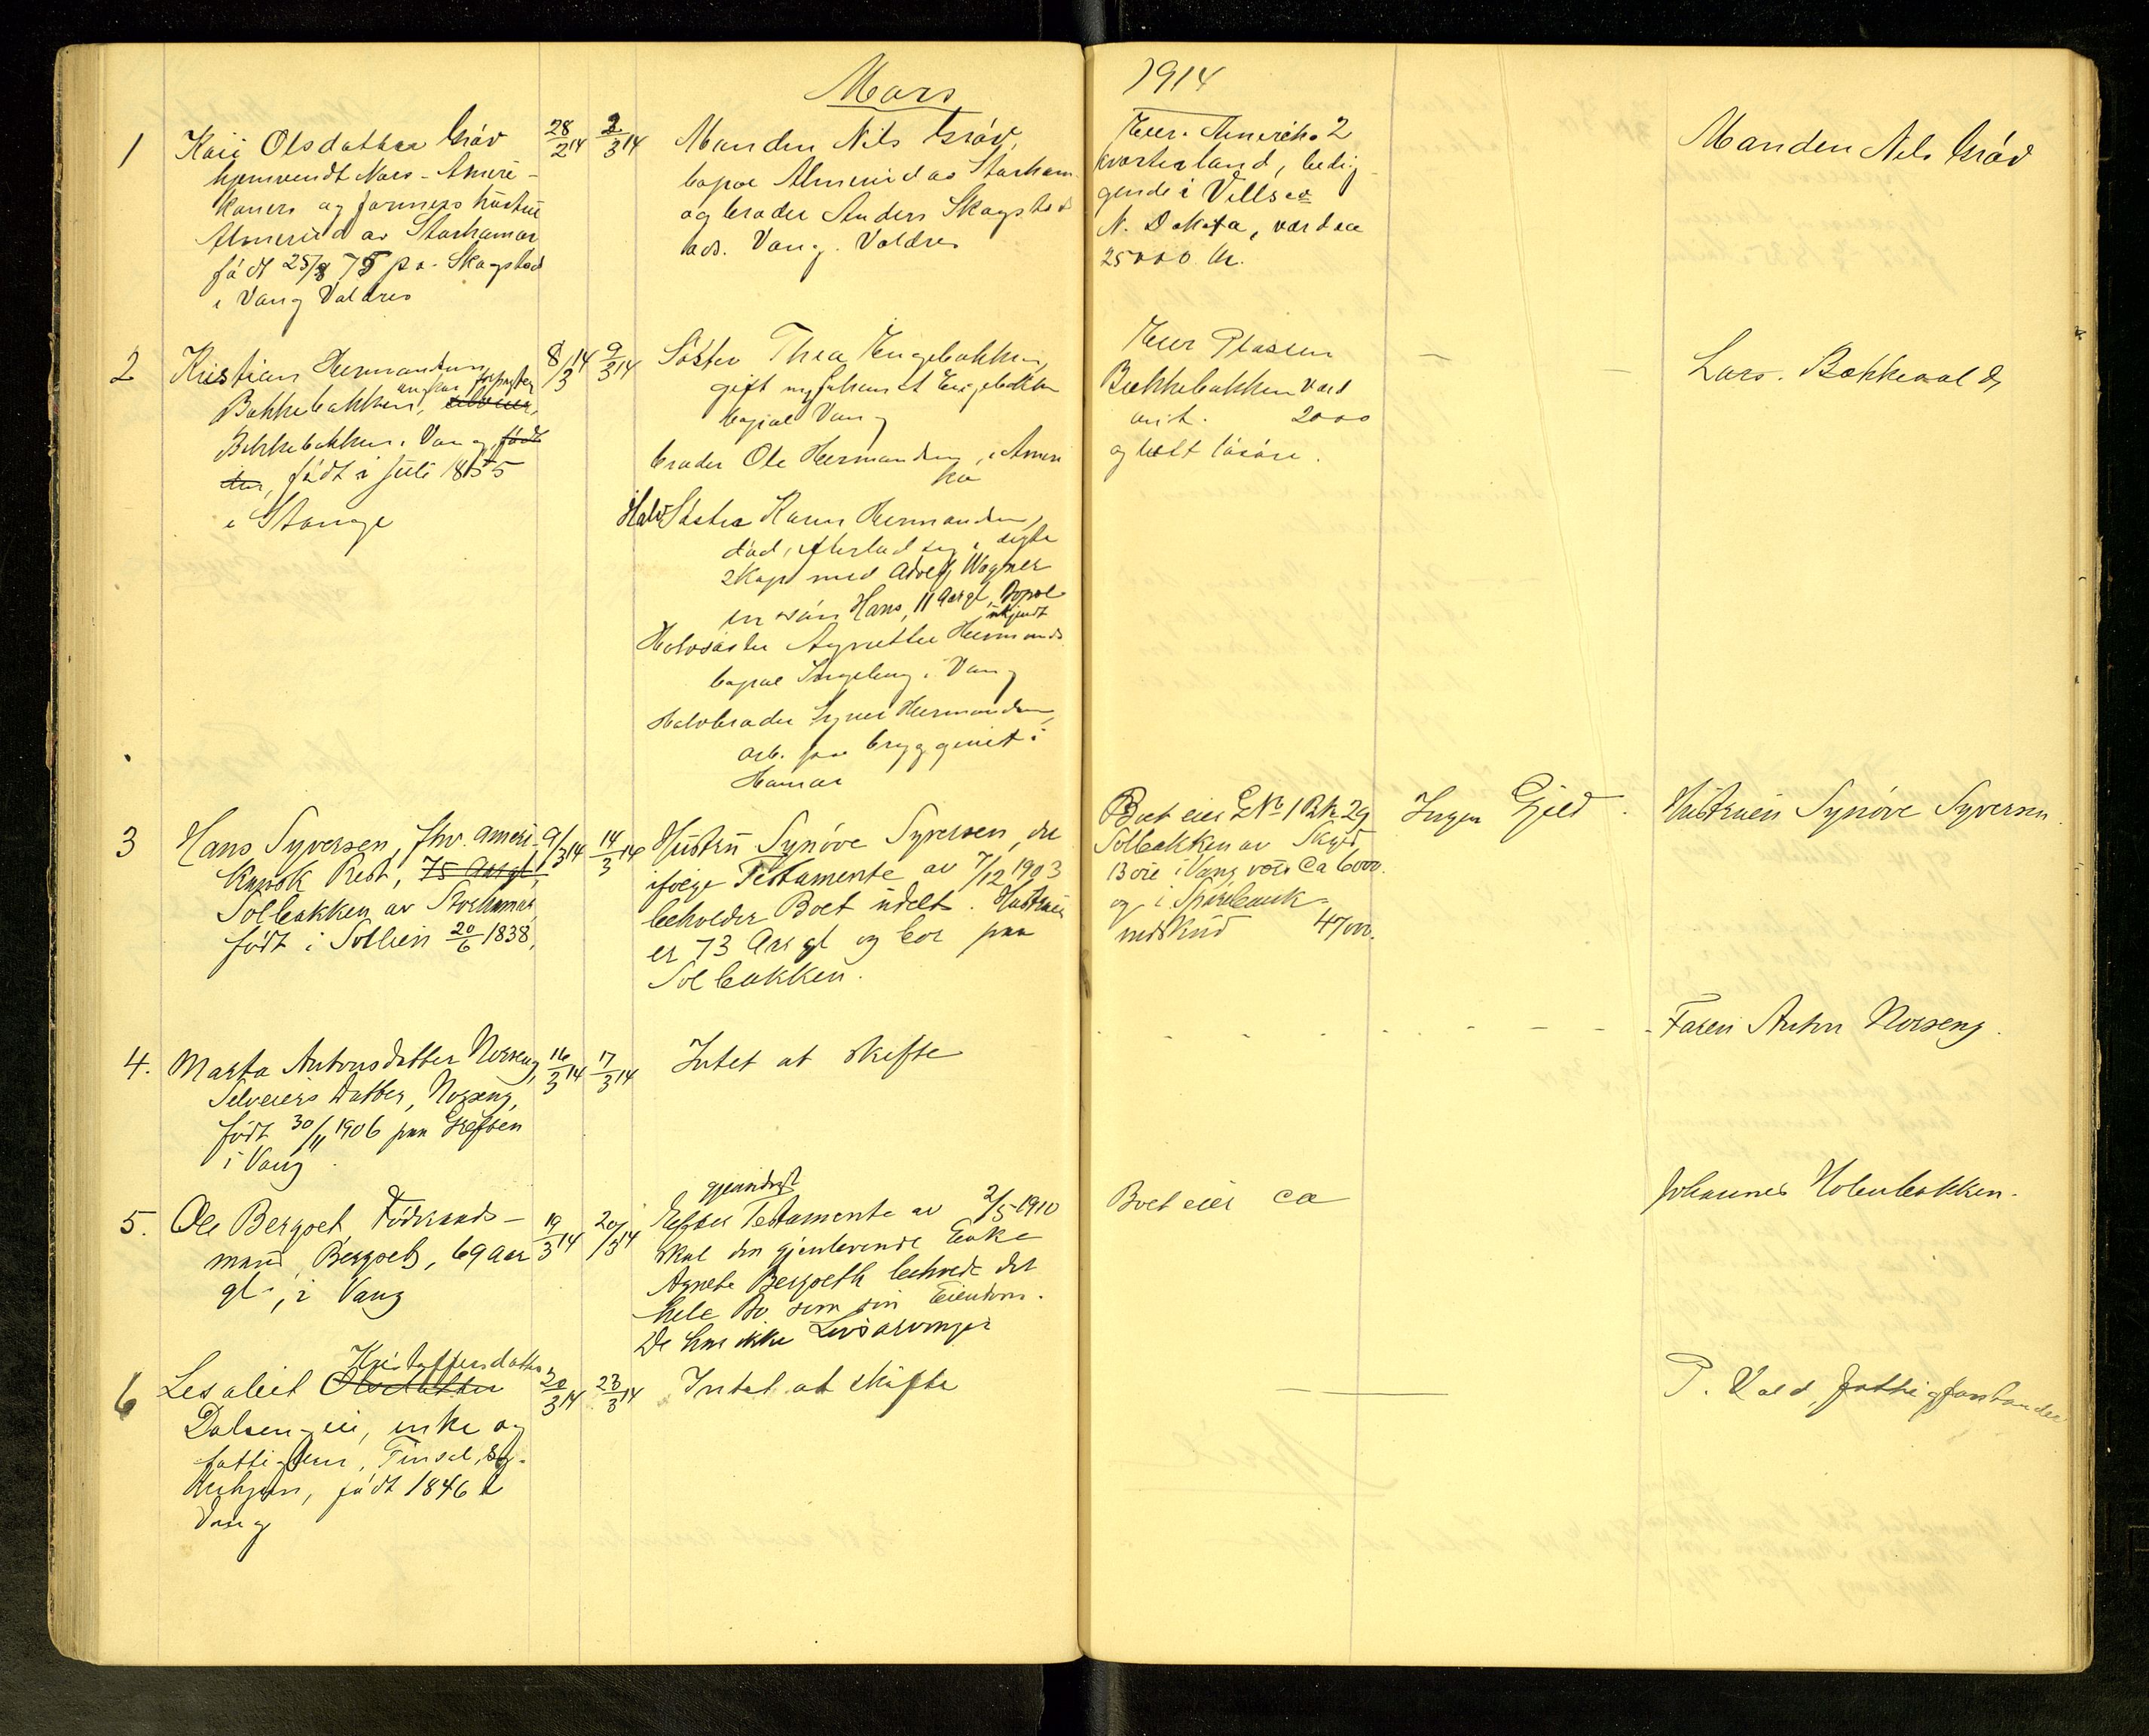 Mars 1914
1
Kari Olsdatter Gråv
hjemvendt Nors-Ameri-
kaners og farmers hustru
Almerud av Storhamar
född 25/8 75 på Skogstad
i Vang Valdres
28/2 14
2/3 14
Manden Nils Gråv,
bopæl Almerud av Storham.
og broder Anders Skogstad
ads. Vang. Valdres
Eier i Amerika 2
kvarterland, belig-
gende i
N. Dakota, værd ca
25000 kr.
Manden Nils Gråv
2
Kristian Hermandsen
Bækkebakken, ungkar forpagter
selveier,
Bækkebakken i Vang født
den, född i juli 1855
i Stange
8/3 14
9/3 14
Söster Thea Engebakken,
gift Engebakken
bopæl Vang
broder Ole Hermandsen, i Ameri
ka
Halv Söster Karen Hermandsen,
död, efterlod sig i egte
skap med Adolf Wagner
en sön Hans, 11 aar gl, Bopæl
ukjendt
Halvsöster Agnethe Hermands
bopæl Ingeberg i Vang
Halvbroder Syver Hermandsen,
arb. paa bryggeriet i
Hamar
Eier Plassen
Bækkebakken værd
ant. 2000
og lidt lösöre.
—
—
Lars Bækkevold
3
Hans Syversen, fhv. ameri-
kansk Prest, 75 Aar gl,
Solbakken av Storhamar,
født i Sollien 20/6 1838,
9/3 14
14/3 14
Hustru Synøve Syversen, der
ifølge Testamente av 7/12 1903
beholder Boet udelt. Hustruen
er 73 Aar gl og bor paa
Solbakken.
Boet eier GNo 1 BNo 29
Solbakken av
i Vang værd ca 6000.
og i Sparebank-
indskud 47000.
Ingen Gjeld.
Hustruen Synøve Syversen.
4.
Marta Antonsdatter Norseng,
Selveiers Datter, Norseng,
født 30/11 1906 paa Grefsen
i Vang.
16/3 14
17/3 14
Intet at skifte
Faren Anton Norseng.
5.
Ole Bergset Föderaads-
mand, Bergset, 69 Aar
gl., i Vang
19/3 14
20/3 14
gjensidigt
Efter Testamente av 2/5 1910
skal den gjenlevende Enke
Agnete Bergseth beholde det
hele Bo som sin Eiendom.
De har ikke Livsarvinger
Boet eier ca
Johannes Holenbakken.
6
Lesabet Olsdatter Kristoffersdatter
Dalseng-eie, enke og
fattiglem, Finsal, Sy-
kehjem, född 1846 i
Vang
20/3 14
23/3 14
Intet at skifte
—
P. Vold, fattigforstander